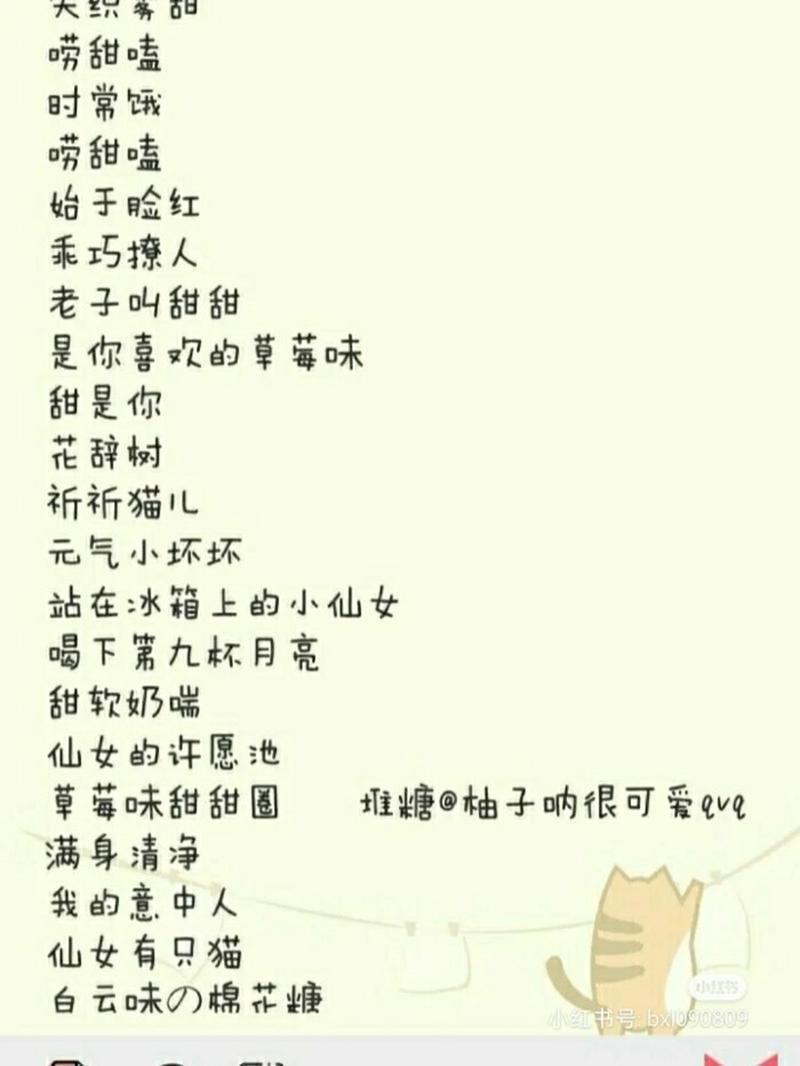 唠甜嗑
时常饿
唠甜嗑
始于脸红
乖巧撩人
老子叫甜甜
是你喜欢的草莓味
甜是你
花辞树
祈祈猫儿
元气小坏坏
站在冰箱上的小仙女
喝下第九杯月亮
甜软奶喘
仙女的许愿池
草莓味甜甜圈 堆糖@柚子呐很可爱qvq
满身清净
我的意中人
仙女有只猫
白云味の棉花糖
小红书
小红书号: bxl090809